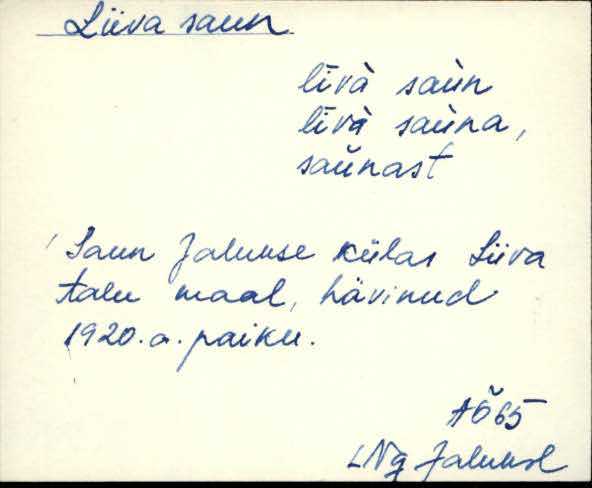 Liiva saun
līvà saùn
līvà saùna,
saŭnast
Saun Jalukse külas Liiva
talu maal, hävinud
1920. a. paiku.
AÕ65
LNg Jalukse